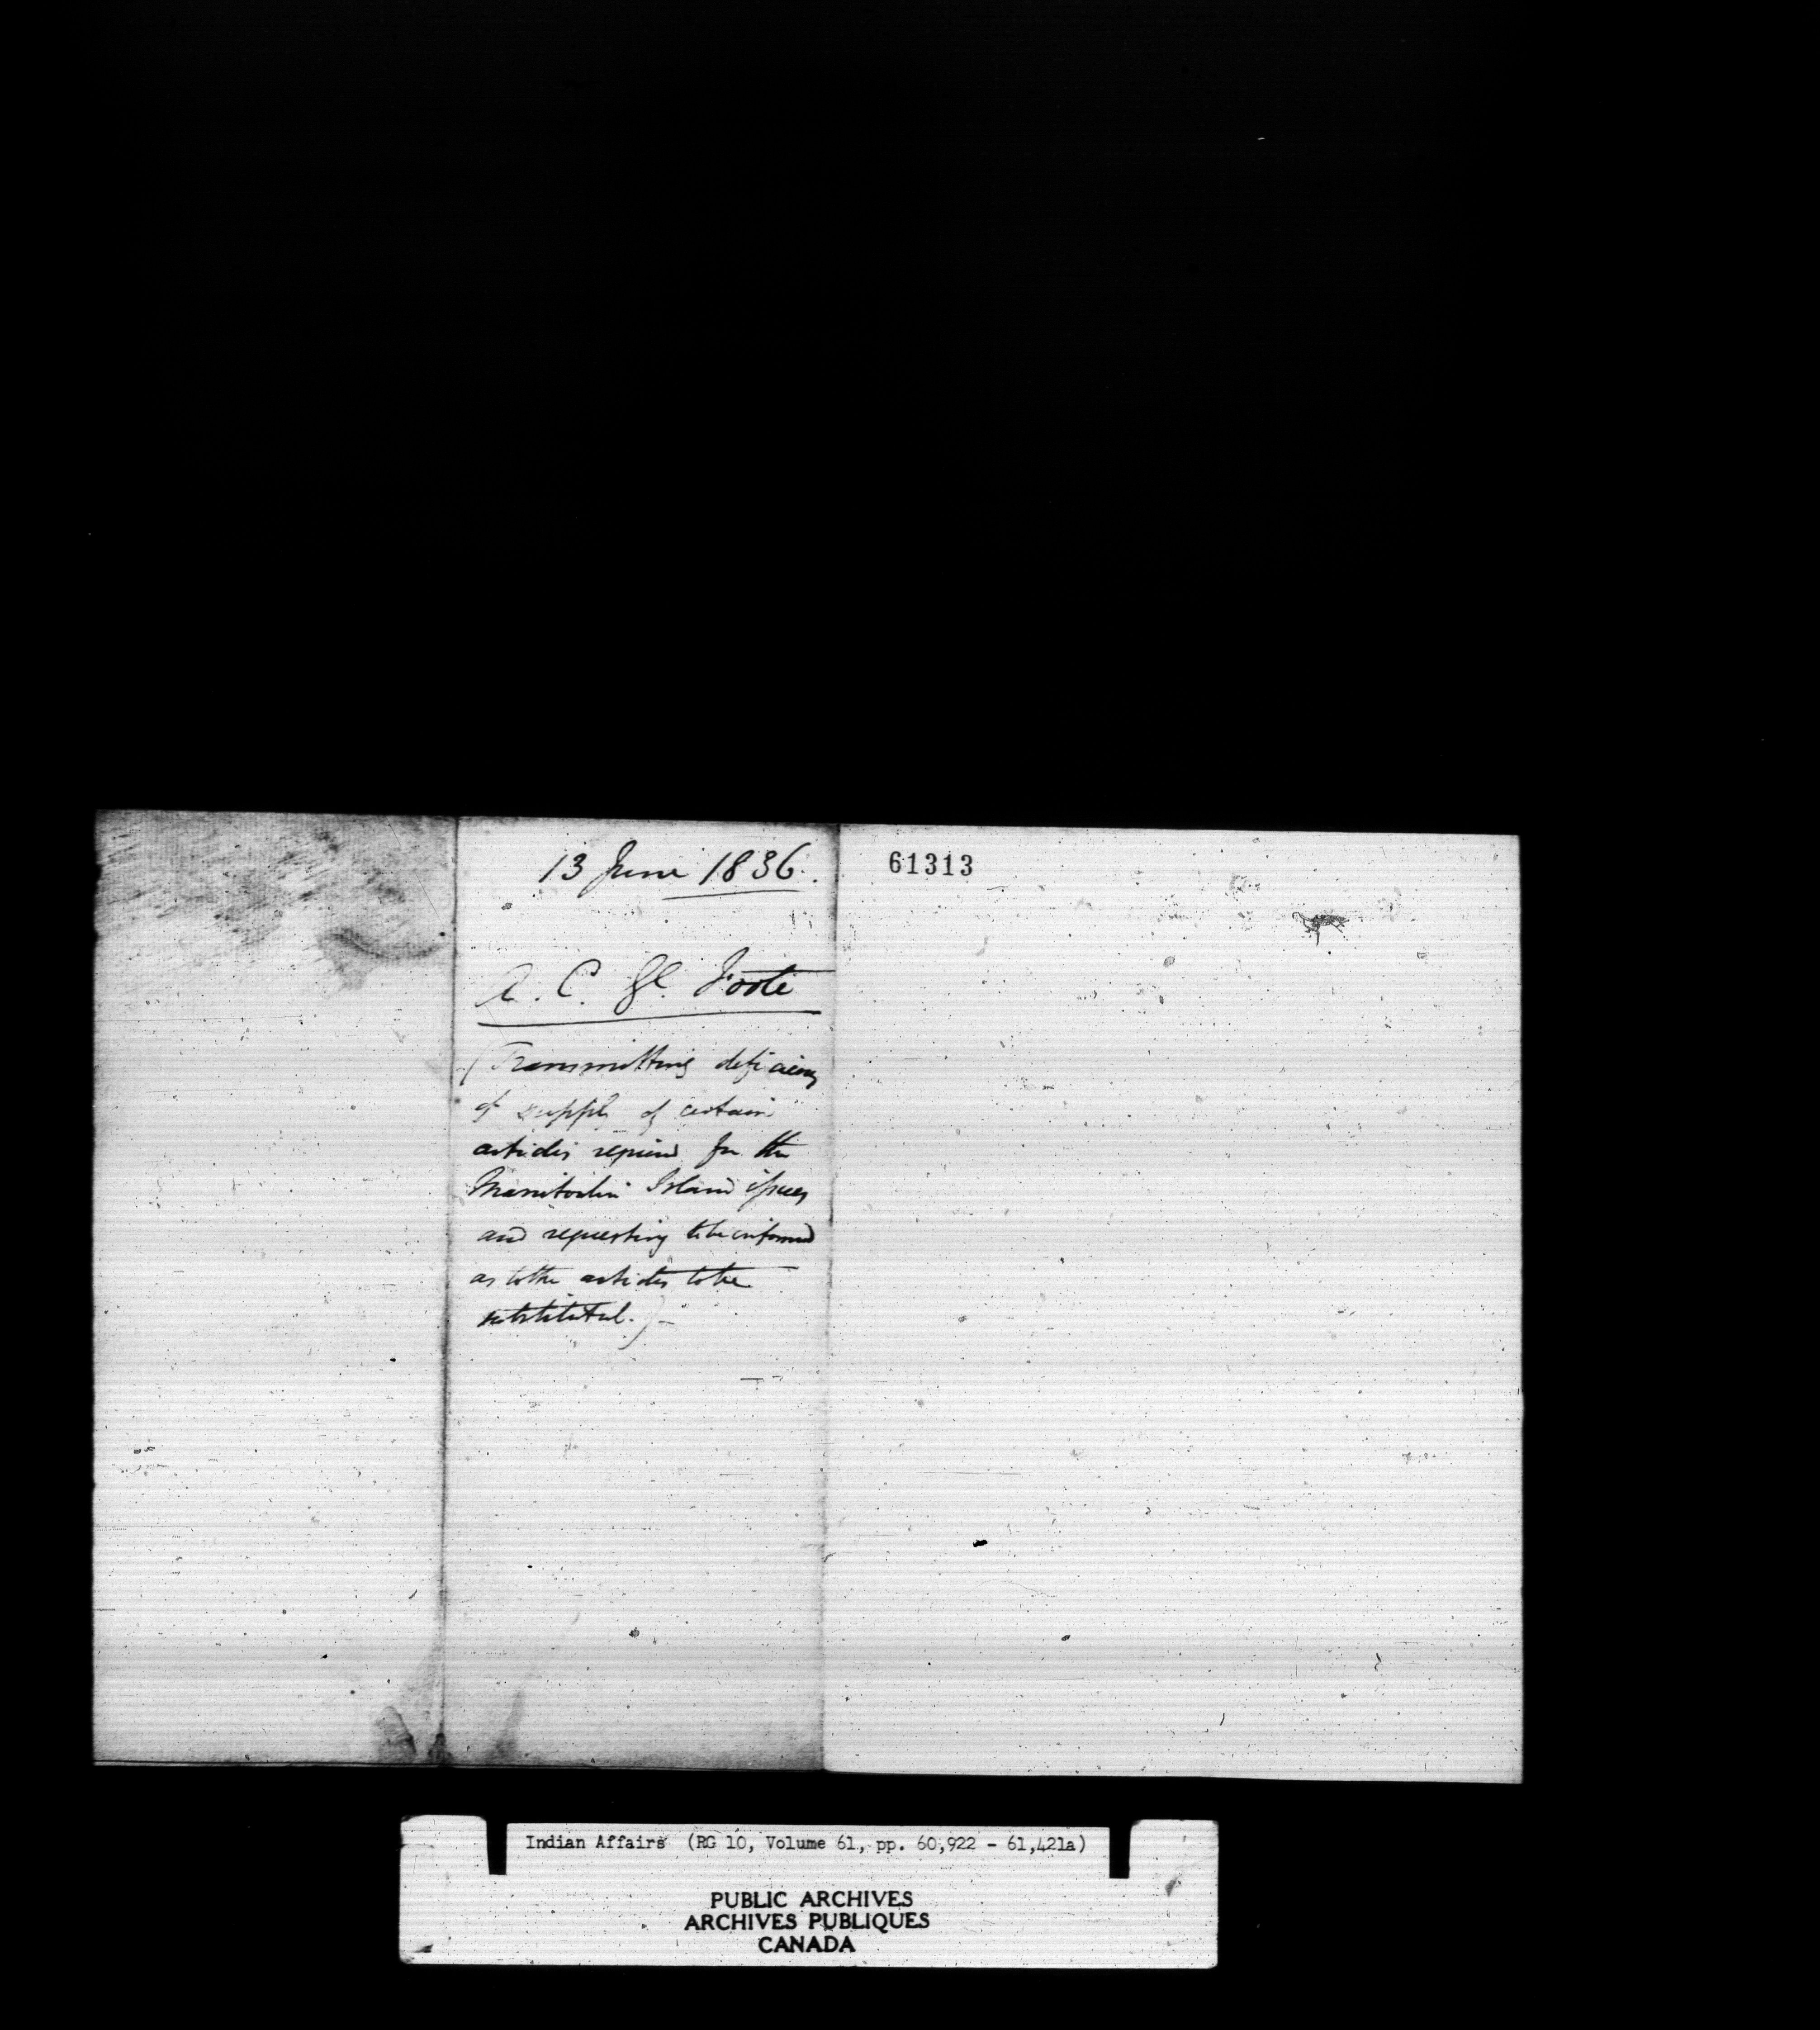 13 June 1836.
A. C. Gl. Foote
(Transmitting deficiency
of supply of certain
articles required for the
Manitoulin Island issues
and requesting to be informed
as to the articles to be
substituted.)-
61313
Indian Affairs (RG 10, Volume 61, pp. 60,922 - 61,421a)
PUBLIC ARCHIVES
ARCHIVES PUBLIQUES
CANADA